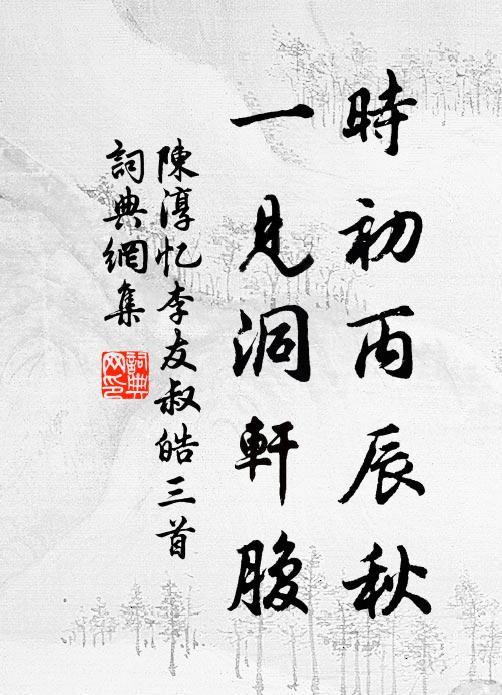 時初丙辰秋
一見洞軒腹
陳淳忆李友叔皓三首
詞典網集
詞典网印